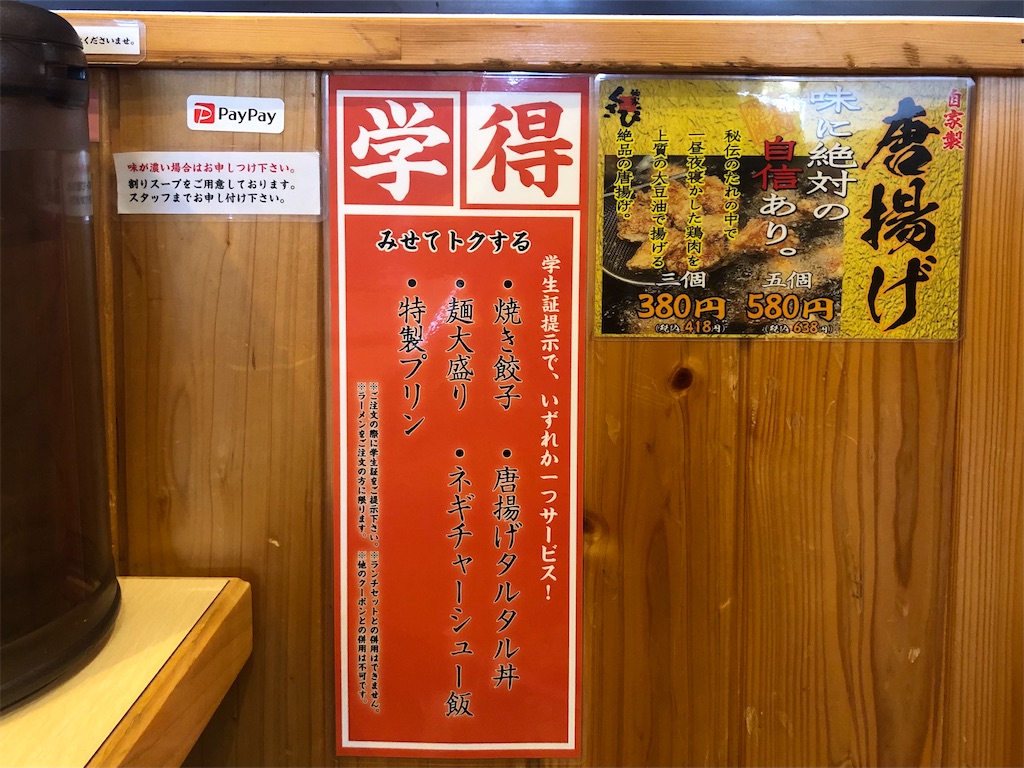 くださいませ。
PayPay
味が濃い場合はお申しつけ下さい。
割りスープをご用意しております。
スタッフまでお申し付け下さい。
学得
みせてトクする
学生証提示で、いずれか一つサービス！
・焼き餃子 ・唐揚げタルタル丼
・麺大盛り ・ネギチャーシュー飯
・特製プリン
※ご注文の際に学生証をご提示下さい。 ※ランチセットとの併用はできません。
※ラーメンをご注文の方に限ります。 ※他のクーポンとの併用は不可です。
自家製
唐揚げ
味に絶対の
自信あり。
秘伝のたれの中で
一昼夜寝かした鶏肉を
上質の大豆油で揚げる
絶品の唐揚げ。
五個
580円
(税込 638円)
三個
380円
(税込 418円)